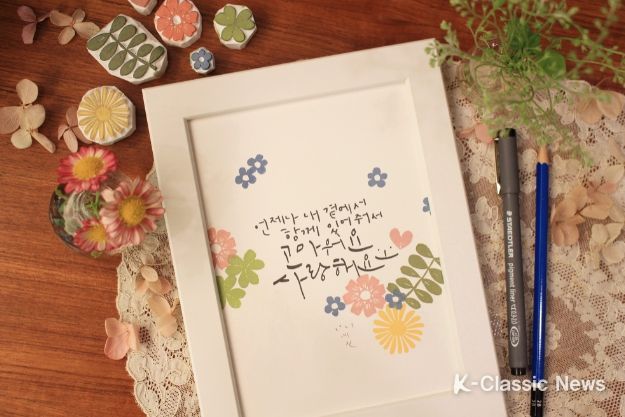 언제나 내 곁에서
함께 있어줘서
고마워요
사랑해요
STAEDTLER
pigment liner
K-Classic News